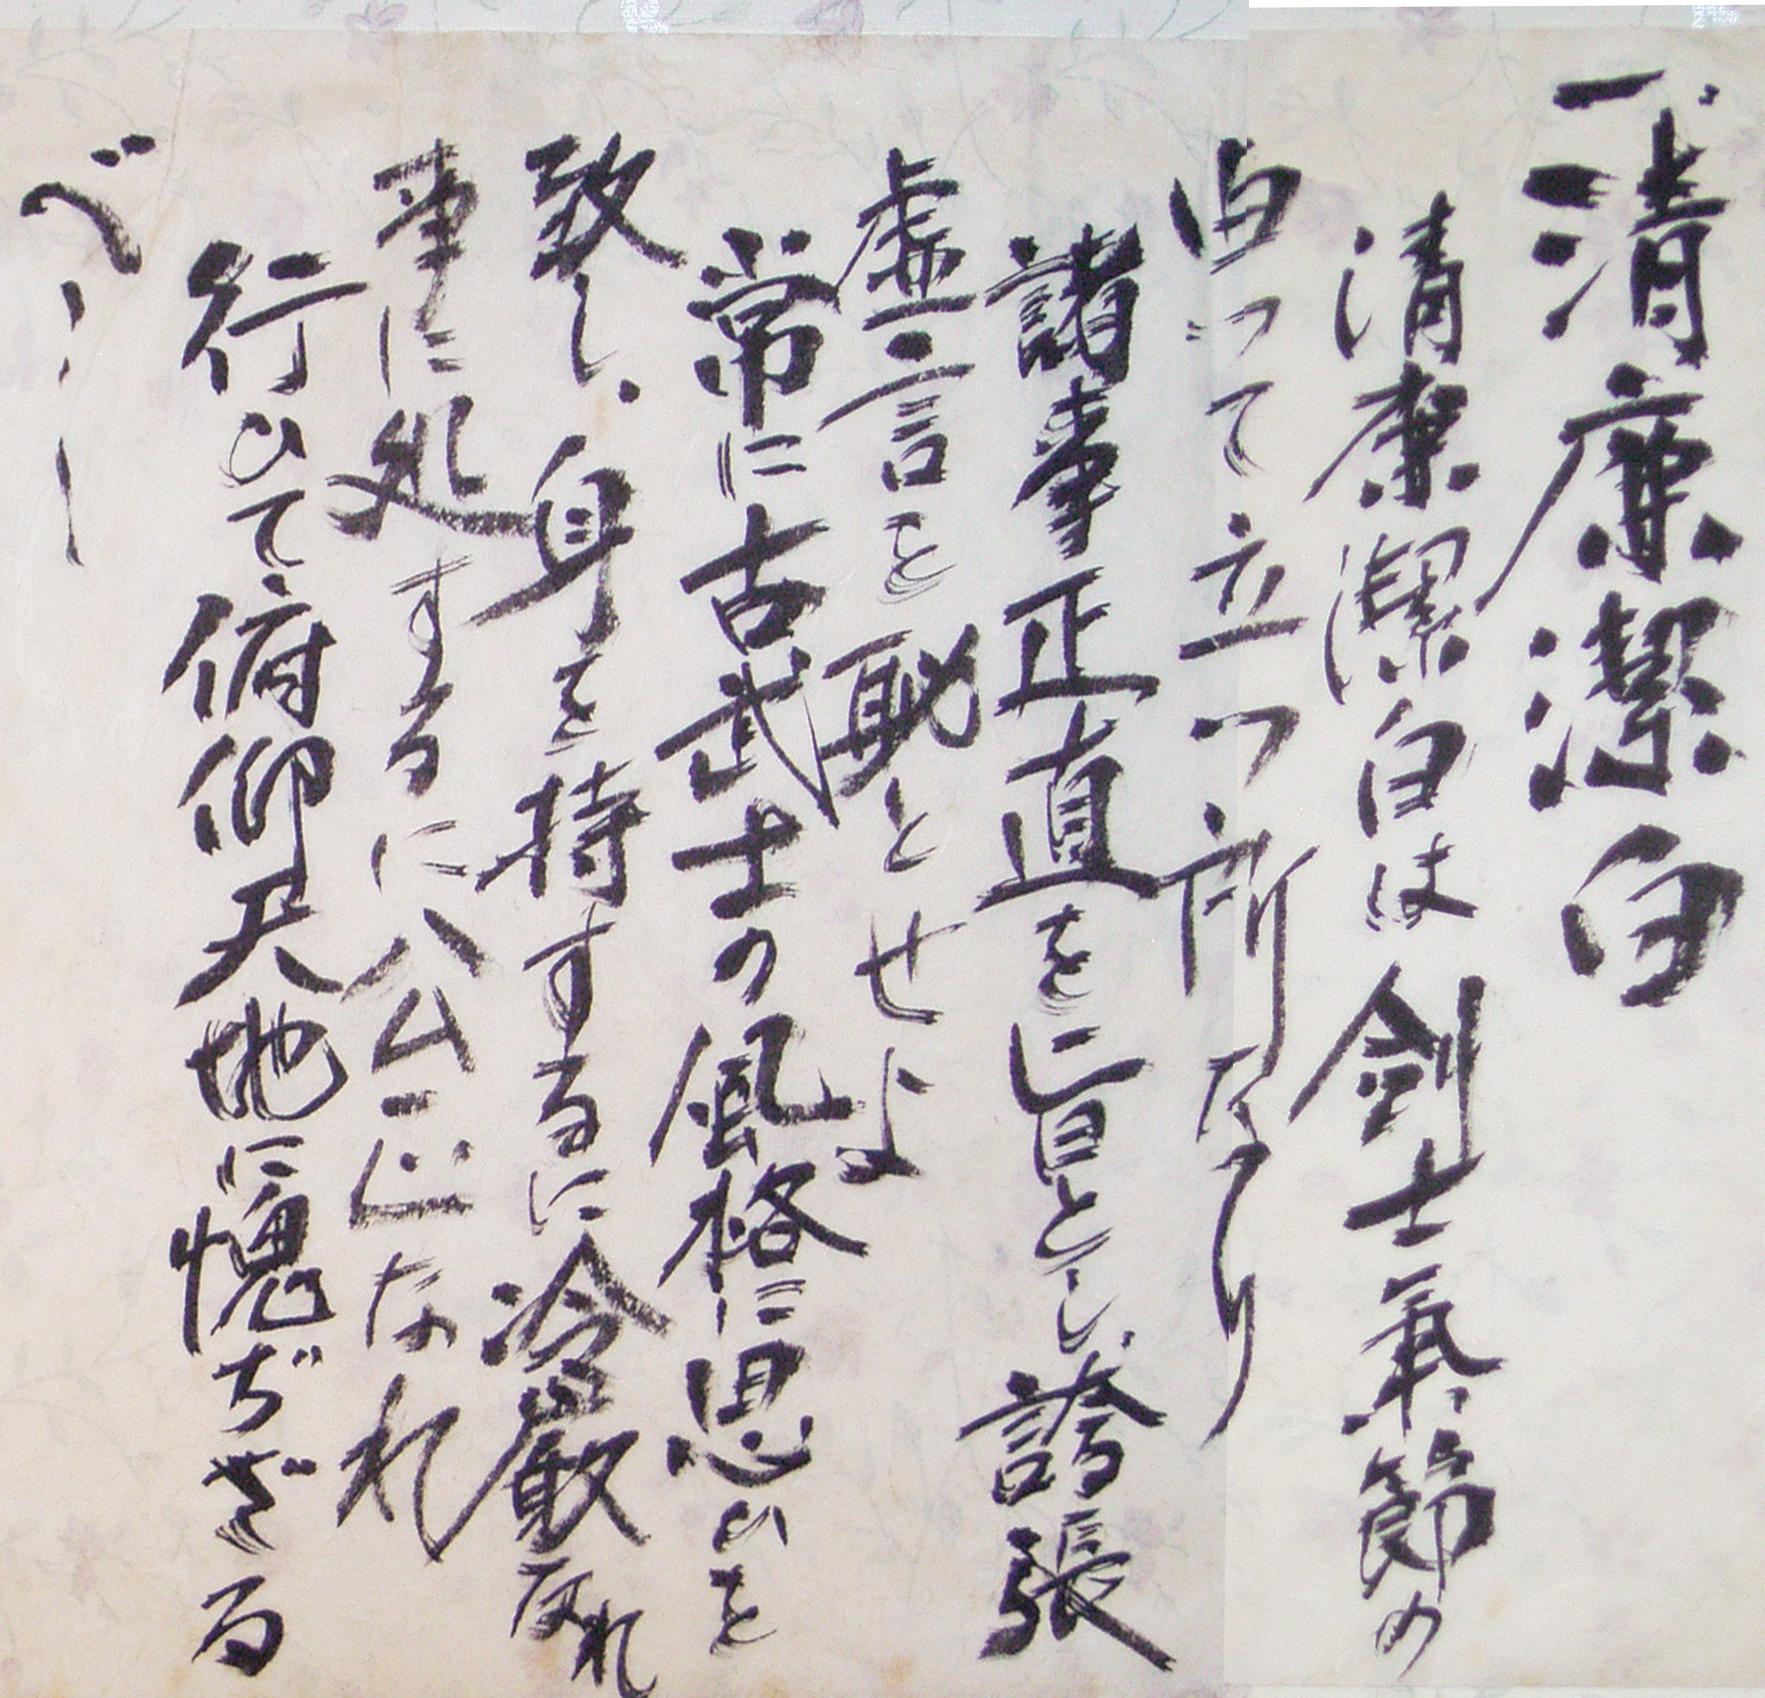 一、清廉潔白
清潔潔白は剣士氣節の
由って立つ所なり
諸事正直を旨とし、誇張
虚言を恥とせよ
常に古武士の風格に思いを
致し、身を持するに冷厳なれ
事に処するに公正なれ
行ひて俯仰天地に愧ぢざる
べし